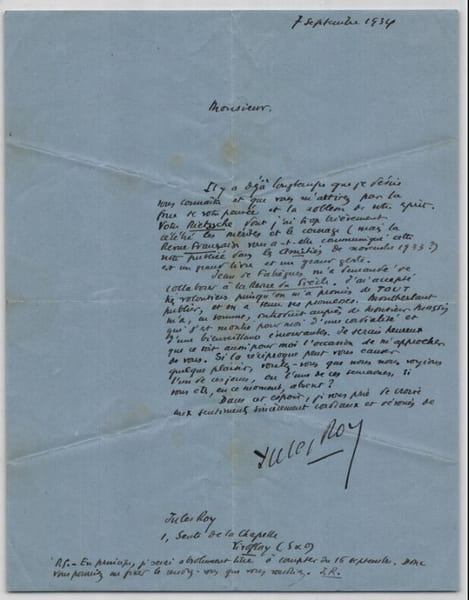 7 septembre 1934
Monsieur.
Il y a déjà longtemps que je désire
vous connaître et que vous m'attirez par la
force de votre pensée et la noblesse de votre esprit.
Votre Nietzsche dont j'ai trop brièvement
célébré les mérites et le courage (mais la
Revue Française vous a-t-elle communiqué cette
note publiée dans les Amitiés de novembre 1933 ?)
est un grand livre et un grand geste.
Jean de Fabrègues m'a demandé de
collaborer à la Revue du Siècle. J'ai accepté
volontiers puisqu'on m'a promis de TOUT
publier, et on a tenu ses promesses. Montherlant
m'a, en somme, introduit auprès de Monsieur Massis
qui s'est montré pour moi d'une cordialité et
d'une bienveillance encourageantes. Je serais heureux
que ce soit aussi pour moi l'occasion de m'approcher
de vous. Si la réciproque peut vous causer
quelque plaisir, voulez-vous que nous nous voyions
l'un de ces jours, ou l'une de ces semaines, si
vous êtes, en ce moment, absent ?
Dans cet espoir, je vous prie de croire
aux sentiments sincèrement cordiaux et dévoués de
Jules Roy
Jules Roy
1, Sente de la Chapelle
Viroflay (S & O)
P.S. - En principe, je serai absolument libre à compter du 16 septembre. Donc
vous pourriez me fixer le rendez-vous que vous voudriez. J.R.